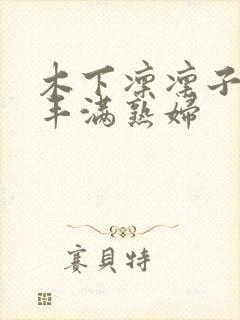 木下凛凛子
丰满熟婦
赛貝特